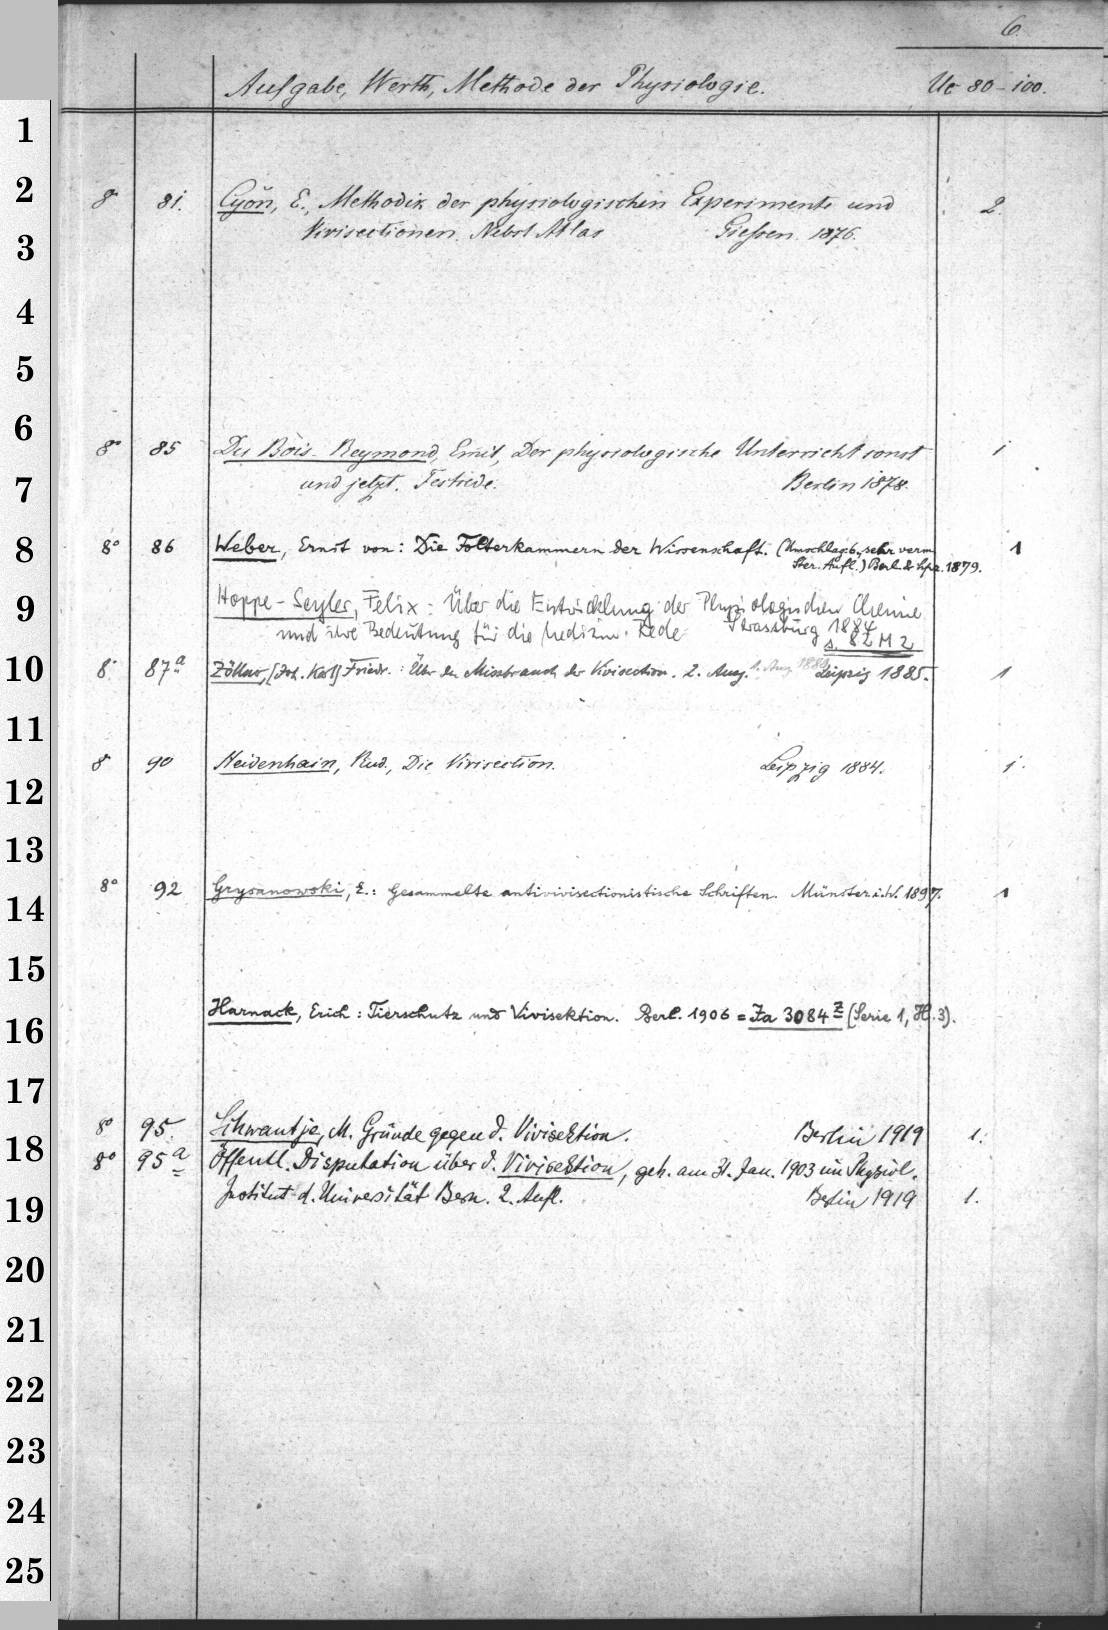 6
Aufgabe, Werth, Methode der Physiologie. Uc 80-100.
1
2
3
4
5
6
7
8
9
10
11
12
13
14
15
16
17
18
19
20
21
22
23
24
25
8° 81. Cyon, E., Methodik der physiologischen Experimente und 2.
Vivisectionen. Nebst Atlas Giessen. 1876.
8° 85 Du Bois-Reymond, Emil, Der physiologische Unterricht sonst 1
und jetzt. Festrede. Berlin 1878.
8° 86 Weber, Ernst von: Die Folterkammern der Wissenschaft. (Umschlag: 6., sehr verm 1
Ster. Aufl.) Berl. & Lpz. 1879.
Hoppe-Seyler, Felix: Über die Entwicklung der Physiologischen Chemie
und ihre Bedeutung für die Medizin. Rede Strassburg 1884
s. 82 M 2
8° 87a Zöllner, [Joh. Karl] Friedr.: Über den Missbrauch der Vivisection. 2. Ausg. 1. Ausg 1880 Leipzig 1885. 1
8° 90 Heidenhain, Rud., Die Vivisection. Leipzig 1884. 1.
8° 92 Grysanowski, E.: Gesammelte antivivisectionistische Schriften. Münster i.W. 1897. 1
Harnack, Erich: Tierschutz und Vivisektion. Berl. 1906 = Ja 3084 z (Serie 1, H. 3).
8° 95. Schwantje, M. Gründe gegen d. Vivisektion. Berlin 1919 1.
8° 95a Öffentl. Disputation über d. Vivisektion, geh. am 31. Jan. 1903 im Physiol.
Institut d. Universität Bern. 2. Aufl. Berlin 1919 1.